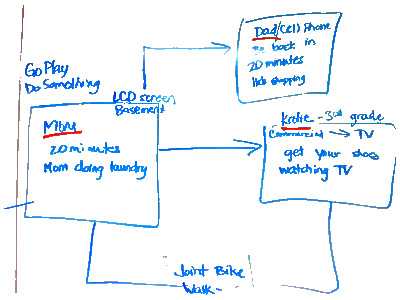 Go Play
Do Something
LCD screen
Basement
Mom
20 minutes
Mom doing laundry
Dad/Cell Phone
back in
20 minutes
shopping
Katie - 3rd grade
Commercial → TV
get your shoes
watching TV
Joint Bike
Walk